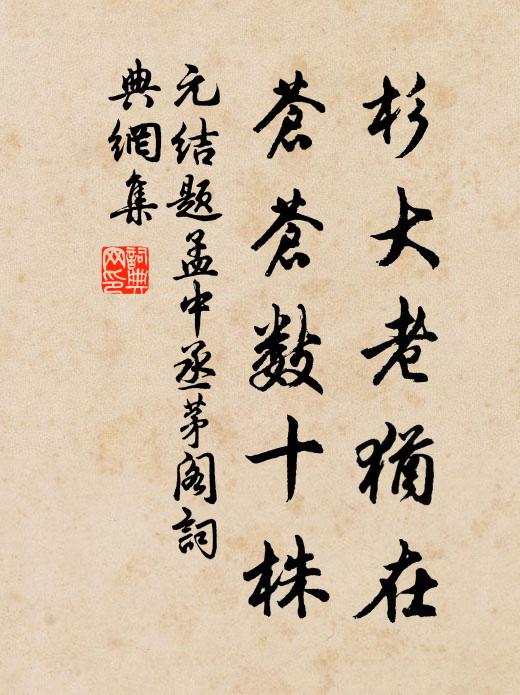 杉大老猶在
蒼蒼數十株
元结题孟中丞茅阁詞
典網集
詞典
网印